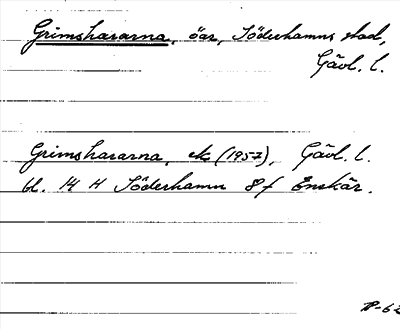 Grimshararna, öar, Söderhamns stad,
Gävl. l.
Grimshararna, ek (1957), Gävl. l.
bl. 14 H Söderhamn 8 f Enskär.